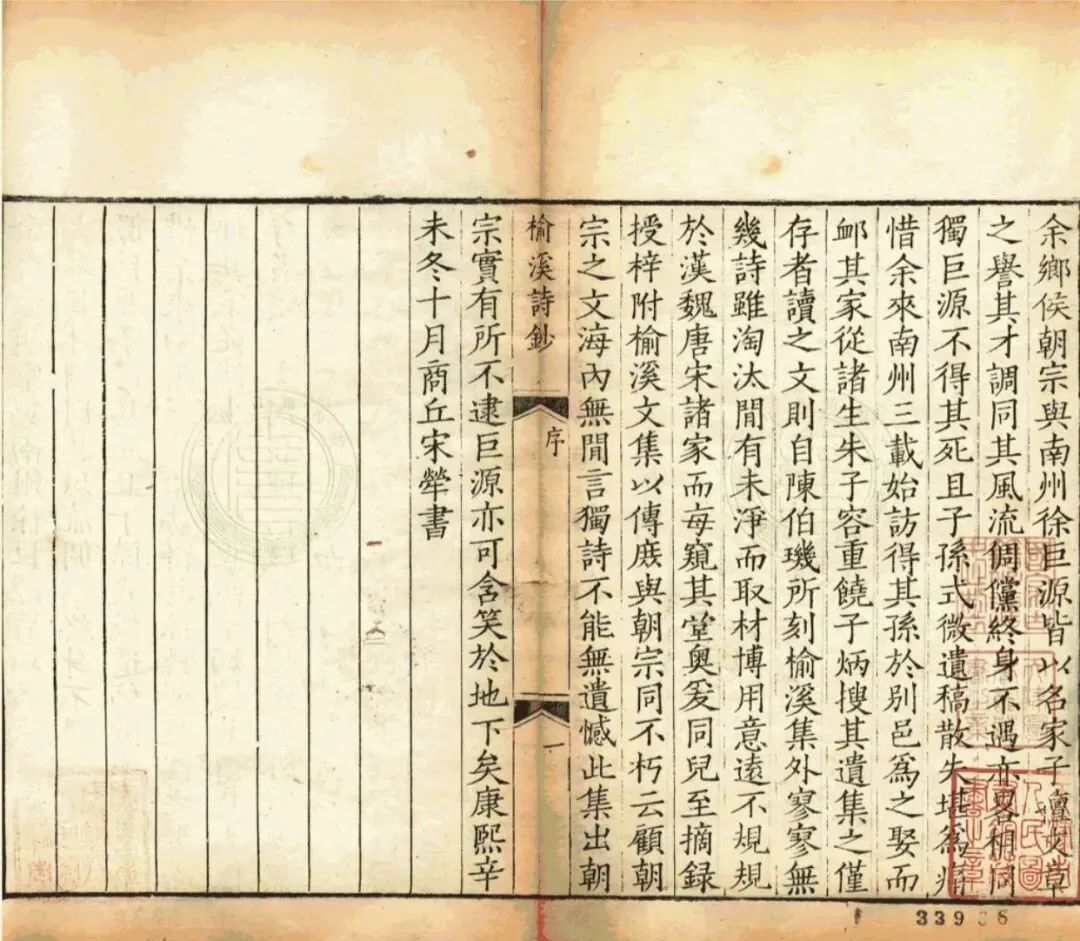 余鄉侯朝宗與南州徐巨源皆以名家子擅文章
之譽其才調同其風流倜儻終身不遇亦畧相同
獨巨源不得其死且子孫式微遺稿散失堪為痛
惜余來南州三載始訪得其孫於別邑為之娶而
䘏其家從諸生朱子容重饒子炳搜其遺集之僅
存者讀之文則自陳伯璣所刻榆溪集外寥寥無
幾詩雖淘汰間有未淨而取材博用意遠不規規
於漢魏唐宋諸家而每窺其堂奧爰同兒至摘錄
授梓附榆溪文集以傳庶與朝宗同不朽云顧朝
宗之文海內無間言獨詩不能無遺憾此集出朝
榆溪詩鈔 序 一
宗實有所不逮巨源亦可含笑於地下矣康熙辛
未冬十月商丘宋犖書
33908